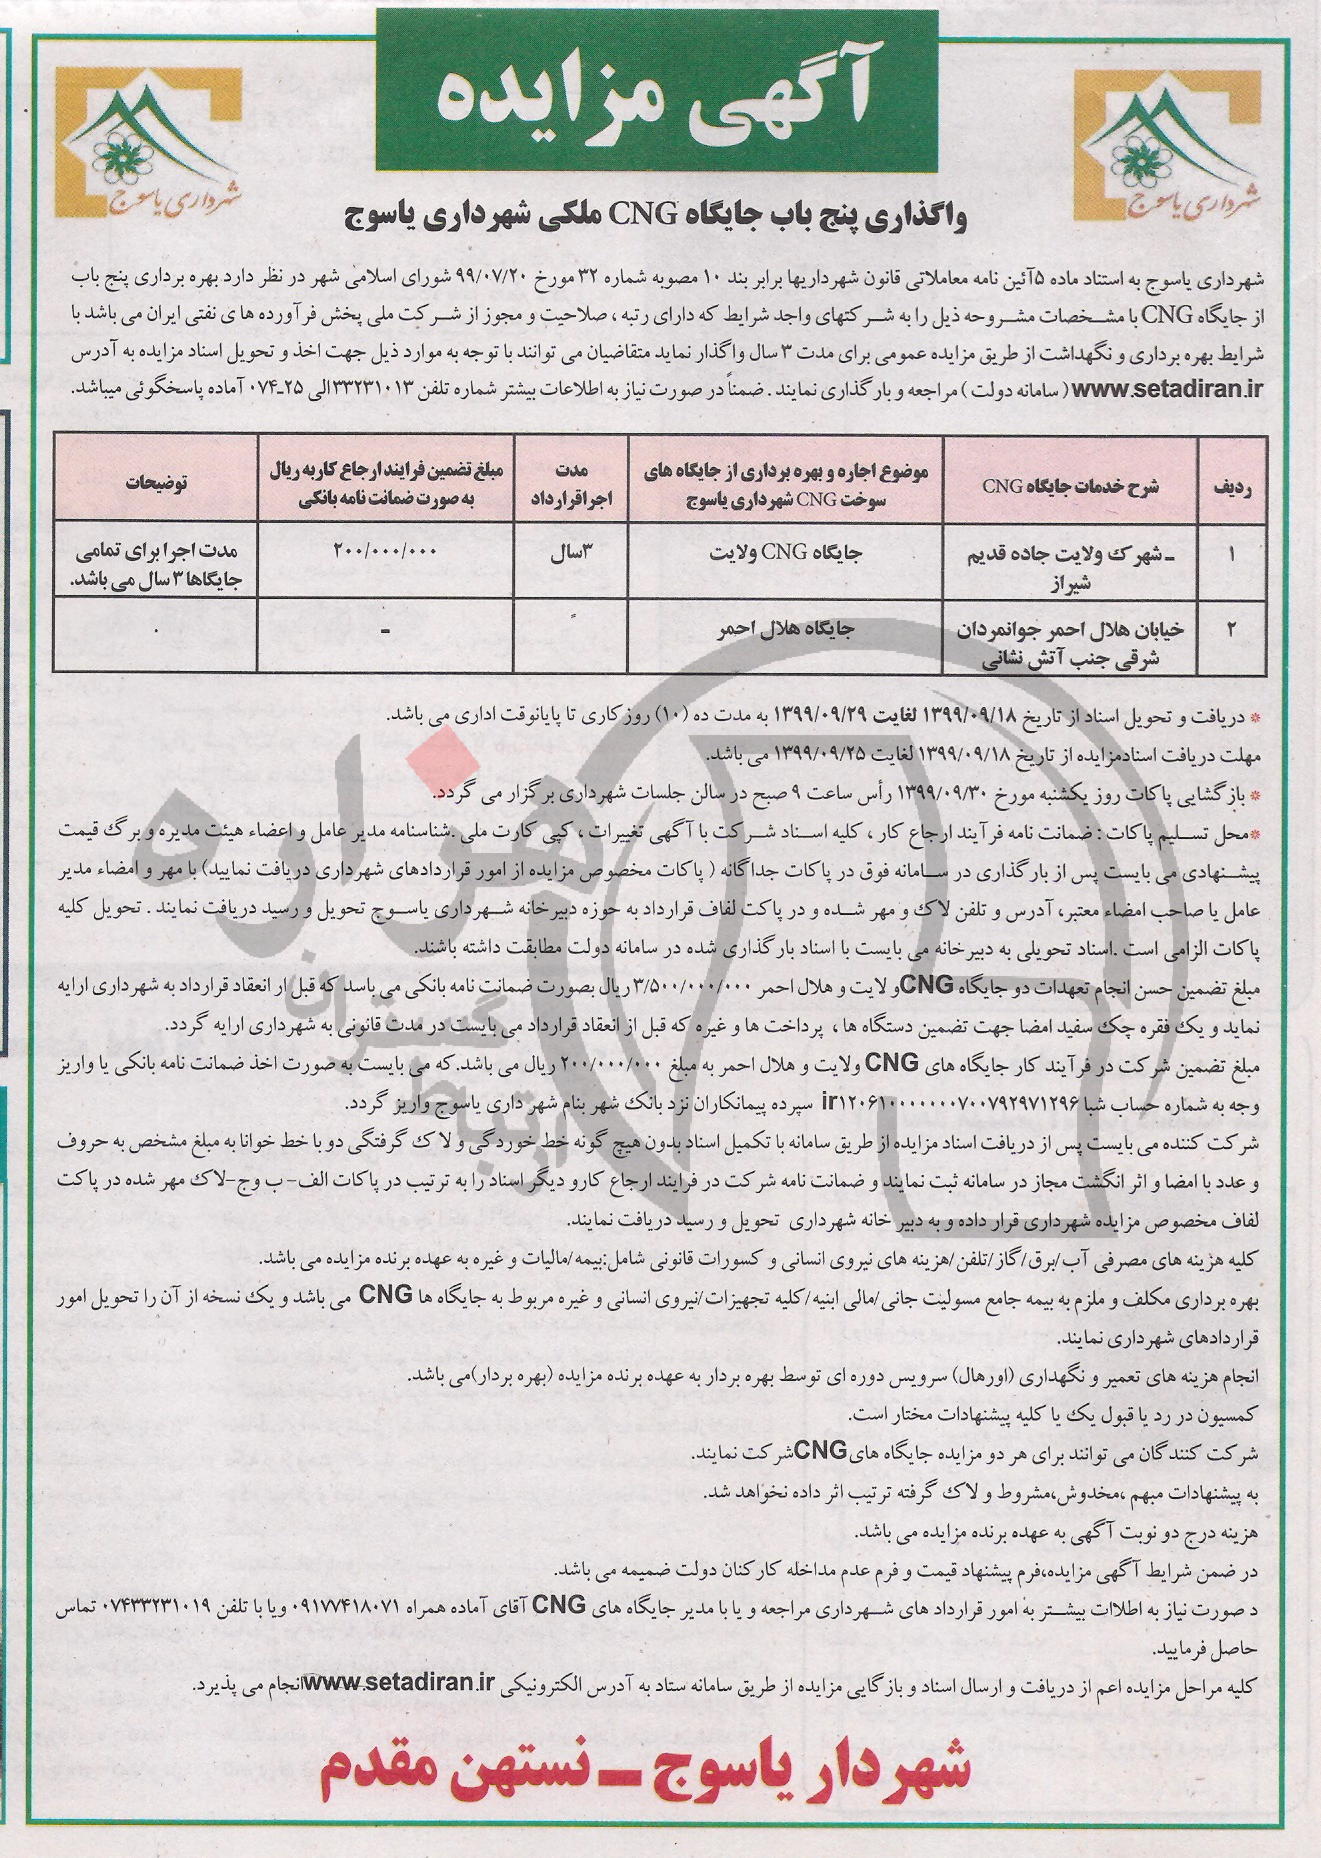 آگهی مزایده
شهرداری یاسوج
شهرداری یاسوج
واگذاری پنج باب جایگاه CNG ملکی شهرداری یاسوج
شهرداری یاسوج به استناد ماده ۵آئین نامه معاملاتی قانون شهرداریها برابر بند ۱۰ مصوبه شماره ۳۲ مورخ ۹۹/۰۷/۲۰ شورای اسلامی شهر در نظر دارد بهره برداری پنج باب
از جایگاه CNG با مشخصات مشروحه ذیل را به شرکتهای واجد شرایط که دارای رتبه ، صلاحیت و مجوز از شرکت ملی پخش فرآورده های نفتی ایران می باشد با
شرایط بهره برداری و نگهداشت از طریق مزایده عمومی برای مدت ۳ سال واگذار نماید متقاضیان می توانند با توجه به موارد ذیل جهت اخذ و تحویل اسناد مزایده به آدرس
www.setadiran.ir ( سامانه دولت ) مراجعه و بارگذاری نمایند . ضمناً در صورت نیاز به اطلاعات بیشتر شماره تلفن ۳۳۲۳۱۰۱۳الی ۲۵-۰۷۴ آماده پاسخگوئی میباشد.
ردیف | شرح خدمات جایگاه CNG | موضوع اجاره و بهره برداری از جایگاه های سوخت CNG شهرداری یاسوج | مدت اجراقرارداد | مبلغ تضمین فرایند ارجاع کار به ریال به صورت ضمانت نامه بانکی | توضیحات
۱ | - شهرک ولایت جاده قدیم شیراز | جایگاه CNG ولایت | ۳سال | ۲۰۰/۰۰۰/۰۰۰ | مدت اجرا برای تمامی جایگاها ۳ سال می باشد.
۲ | خیابان هلال احمر جوانمردان شرقی جنب آتش نشانی | جایگاه هلال احمر | = | - | ۰
* دریافت و تحویل اسناد از تاریخ ۱۳۹۹/۰۹/۱۸ لغایت ۱۳۹۹/۰۹/۲۹ به مدت ده (۱۰) روز کاری تا پایانوقت اداری می باشد.
مهلت دریافت اسنادمزایده از تاریخ ۱۳۹۹/۰۹/۱۸ لغایت ۱۳۹۹/۰۹/۲۵ می باشد.
* بازگشایی پاکات روز یکشنبه مورخ ۱۳۹۹/۰۹/۳۰ رأس ساعت ۹ صبح در سالن جلسات شهرداری برگزار می گردد.
*محل تسلیم پاکات : ضمانت نامه فرآیند ارجاع کار ، کلیه اسناد شرکت با آگهی تغییرات ، کپی کارت ملی .شناسنامه مدیر عامل و اعضاء هیئت مدیره و برگ قیمت
پیشنهادی می بایست پس از بارگذاری در سامانه فوق در پاکات جداگانه ( پاکات مخصوص مزایده از امور قراردادهای شهرداری دریافت نمایید) با مهر و امضاء مدیر
عامل یا صاحب امضاء معتبر، آدرس و تلفن لاک و مهر شده و در پاکت لفاف قرارداد به حوزه دبیرخانه شهرداری یاسوج تحویل و رسید دریافت نمایند . تحویل کلیه
پاکات الزامی است .اسناد تحویلی به دبیرخانه می بایست با اسناد بارگذاری شده در سامانه دولت مطابقت داشته باشند.
مبلغ تضمین حسن انجام تعهدات دو جایگاه CNGو لایت و هلال احمر ۳/۵۰۰/۰۰۰/۰۰۰ ریال بصورت ضمانت نامه بانکی می باسد که قبل ار انعقاد قرارداد به شهرداری ارایه
نماید و یک فقره چک سفید امضا جهت تضمین دستگاه ها ، پرداخت ها و غیره که قبل از انعقاد قرارداد می بایست در مدت قانونی به شهرداری ارایه گردد.
مبلغ تضمین شرکت در فرآیند کار جایگاه های CNG ولایت و هلال احمر به مبلغ ۲۰۰/۰۰۰/۰۰۰ ریال می باشد.که می بایست به صورت اخذ ضمانت نامه بانکی یا واریز
وجه به شماره حساب شبا ir۱۲۰۶۱۰۰۰۰۰۰۰۷۰۰۷۹۲۹۷۱۲۹۶ سپرده پیمانکاران نزد بانک شهر بنام شهر داری یاسوج واریز گردد.
شرکت کننده می بایست پس از دریافت اسناد مزایده از طریق سامانه با تکمیل اسناد بدون هیچ گونه خط خوردگی و لاک گرفتگی دو با خط خوانا به مبلغ مشخص به حروف
و عدد با امضا و اثر انگشت مجاز در سامانه ثبت نمایند و ضمانت نامه شرکت در فرایند ارجاع کارو دیگر اسناد را به ترتیب در پاکات الف- ب وج-لاک مهر شده در پاکت
لفاف مخصوص مزایده شهرداری قرار داده و به دبیر خانه شهرداری تحویل و رسید دریافت نمایند.
کلیه هزینه های مصرفی آب/برق/گاز/تلفن/هزینه های نیروی انسانی و کسورات قانونی شامل:بیمه/مالیات و غیره به عهده برنده مزایده می باشد.
بهره برداری مکلف و ملزم به بیمه جامع مسولیت جانی/مالی ابنیه/کلیه تجهیزات/نیروی انسانی و غیره مربوط به جایگاه ها CNG می باشد و یک نسخه از آن را تحویل امور
قراردادهای شهرداری نمایند.
انجام هزینه های تعمیر و نگهداری (اورهال) سرویس دوره ای توسط بهره بردار به عهده برنده مزایده (بهره بردار)می باشد.
کمسیون در رد یا قبول یک یا کلیه پیشنهادات مختار است.
شرکت کنندگان می توانند برای هر دو مزایده جایگاه هایCNGشرکت نمایند.
به پیشنهادات مبهم ،مخدوش،مشروط و لاک گرفته ترتیب اثر داده نخواهد شد.
هزینه درج دو نوبت آگهی به عهده برنده مزایده می باشد.
در ضمن شرایط آگهی مزایده،فرم پیشنهاد قیمت و فرم عدم مداخله کارکنان دولت ضمیمه می باشد.
د صورت نیاز به اطلاات بیشتر به امور قرارداد های شهرداری مراجعه و یا با مدیر جایگاه های CNG آقای آماده همراه ۰۹۱۷۷۴۱۸۰۷۱ ویا با تلفن ۰۷۴۳۳۲۳۱۰۱۹ تماس
حاصل فرمایید.
کلیه مراحل مزایده اعم از دریافت و ارسال اسناد و بازگایی مزایده از طریق سامانه ستاد به آدرس الکترونیکی www.setadiran.irانجام می پذیرد.
شهردار یاسوج - نستهن مقدم